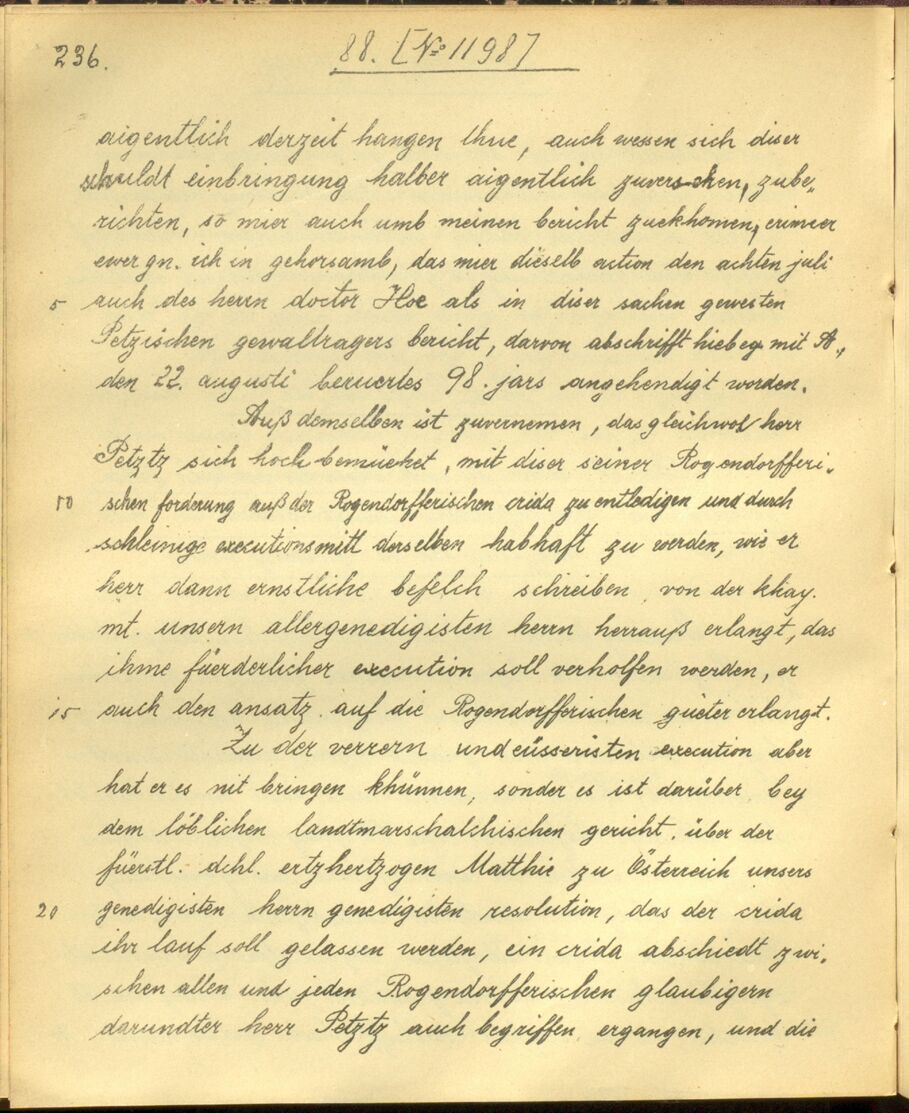 236.
88. [No 1198]
aigentlich derzeit hangen thue, auch wessen sich diser
schuldt einbringung halber aigentlich zuversehen, zube„
richten, so mier auch umb meinen bericht zuekhomen, erineer
ewer gn. ich in gehorsamb, das mier dieselb action den achten juli
5 auch des herrn doctor Hoe als in diser sachen gewesten
Petzischen gewaltragers bericht, darvon abschrifft hiebey mit A.,
den 22. augusti beruertes 98. jars angehendigt worden.
Auß demselben ist zuvernemen, das gleichwol herr
Petztz sich hoch bemüehet, mit diser seiner Rogendorfferi„
10 schen forderung auß der Rogendorfferischen crida zu entledigen und durch
schleinige executionsmitl derselben habhaft zu werden, wie er
herr dann ernstliche befelch schreiben von der khay.
mt. unsern allergenedigisten herrn herrauß erlangt, das
ihme füerderlicher execution soll verholfen werden, er
15 auch den ansatz auf die Rogendorfferischen güeter erlangt.
Zu der verrern und eüsseristen execution aber
hat er es nit bringen khünnen, sonder es ist darüber bey
dem löblichen landtmarschalchischen gericht über der
füerstl. dchl. ertzhertzogen Matthie zu Österreich unsers
20 genedigisten herrn genedigisten resolution, das der crida
ihr lauf soll gelassen werden, ein crida abschiedt zwi„
schen allen und jeden Rogendorfferischen glaubigern
darundter herr Petztz auch begriffen ergangen, und die